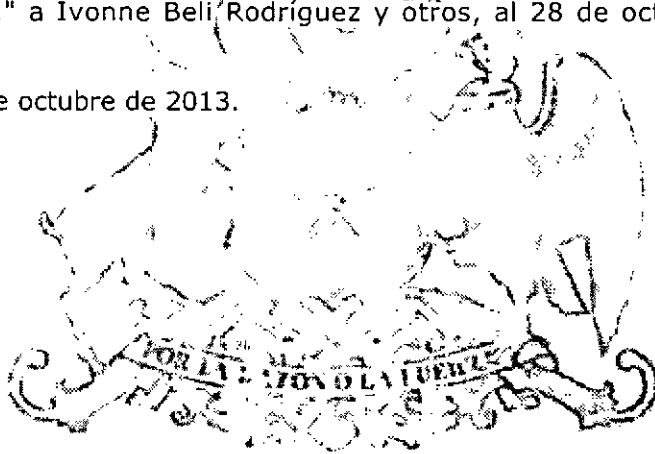 ." a Ivonne Beli Rodríguez y otros, al 28 de oct
e octubre de 2013.
POR LA RAZON O LA FUERZA